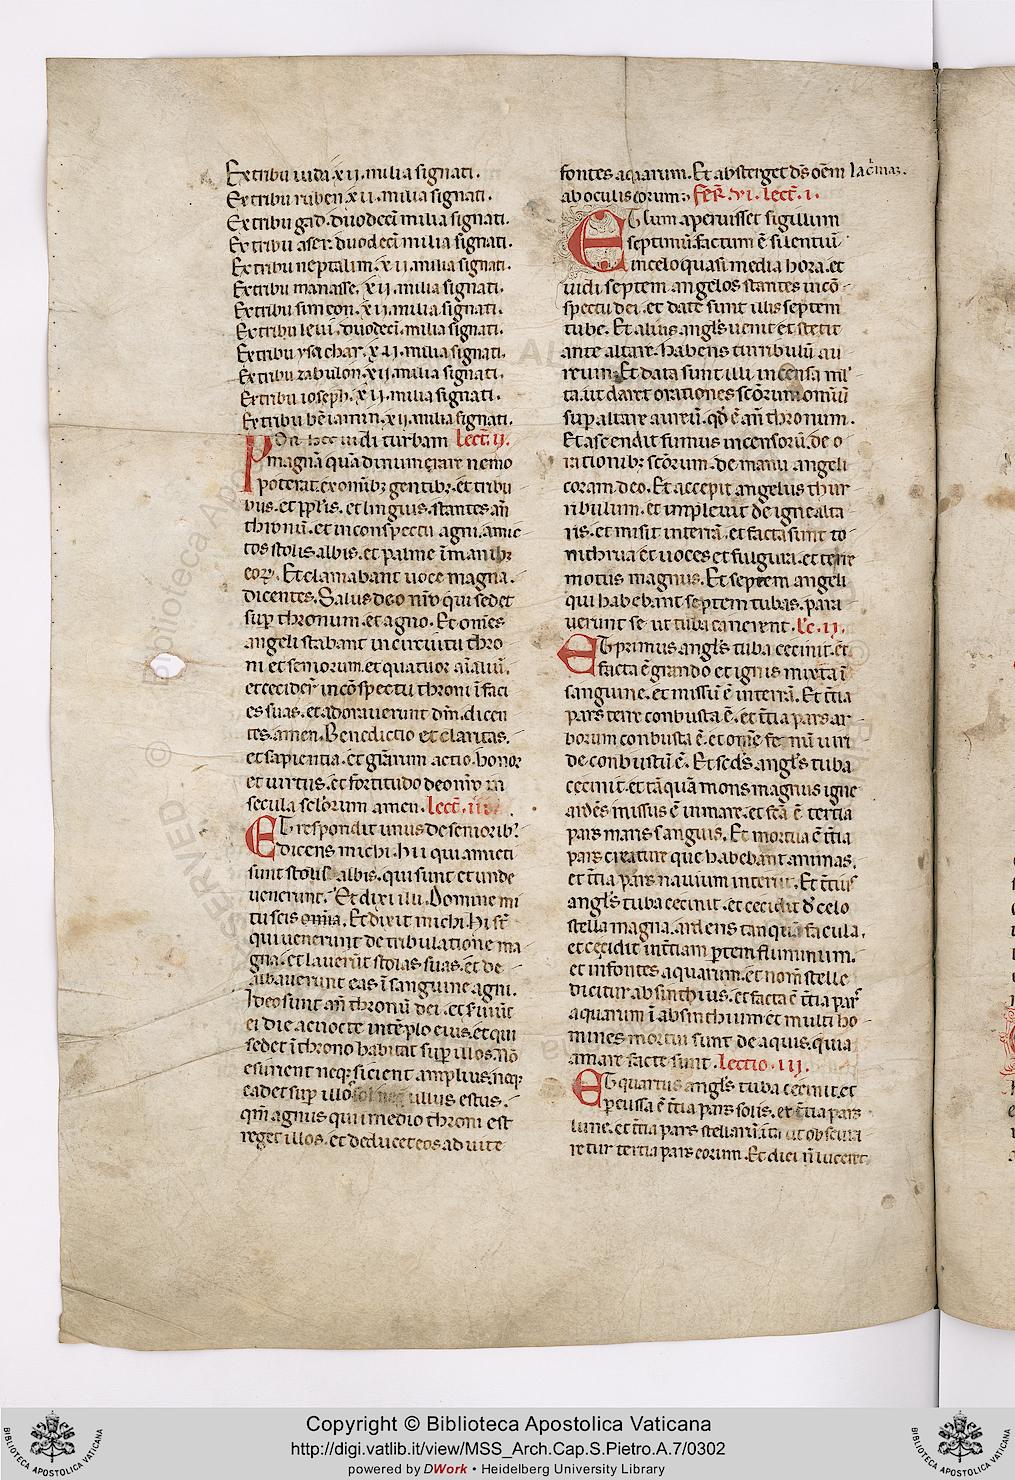 Ex tribu iuda.xii.milia signati.
Ex tribu ruben.xii.milia signati.
Ex tribu gad.duodecĩ milia signati.
Ex tribu aser.duodecĩ milia signati.
Ex tribu neptalim.xii.milia signati.
Ex tribu manasse.xii.milia signati.
Ex tribu simeon.xii.milia signati.
Ex tribu leui.duodecĩ.milia signati.
Ex tribu ysachar.xii.milia signati.
Ex tribu zabulon.xii.milia signati.
Ex tribu ioseph.xii.milia signati.
Ex tribu bẽiamin.xii.milia signati.
Post hec uidi turbam Lect̃.ii.
magnã quã dinumerare nemo
poterat.ex omĩbꝫ gentibꝫ.et tribu
bus.et ppl̃is.et linguis.stantes añ
thronũ.et in conspectu agni.amic
tos stolis albis.et palme ĩ manibꝫ
eoꝝ.Et clamabant uoce magna.
dicentes.Salus deo nr̃o qui sedet
sup̃ thronum.et agno.Et om̃es
angeli stabant in circuitu thro
ni et seniorum.et quatuor aĩaliũ.
et cecider̃ incõspectu throni ĩ faci
es suas.et adorauerunt dñm.dicen
tes.amen.Benedictio et claritas.
et sapientia.et gr̃arum actio.honor
et uirtus.et fortitudo deo nr̃o in
secula sclorum amen.Lect̃.iii.
Et respondit unus de seniorib᷒.
dicens michi.hii qui amicti
sunt stolis albis.qui sunt et unde
uenerunt.Et dixi illi.Domine mi
tu scis om̃ia.Et dixit michi.hi st̃
qui uenerunt de tribulatione ma
gna.et lauerũt stolas suas.et de
albauerunt eas ĩ sanguine agni.
Ideo sunt añ thronũ dei.et s̃uiũt
ei die ac nocte in tẽplo eius.et qui
sedet ĩ throno habitat sup̃ illos.Nõ
esurient neqꝫ sicient amplius.neqꝫ
cadet sup̃ illos sol neqꝫ ullus estus.
qm̃ agnus qui in medio throni est
reget illos.et deducet eos ad uite
fontes aquarum.Et absterget ds̃ om̃em lacrimaꝫ.
ab oculis eorum.fer̃.vi.Lect̃.i.
Et cum aperuisset sigillum
septimũ.factum ẽ silentiũ
in celo quasi media hora.et
uidi septem angelos stantes incõ
spectu dei.et date sunt illis septem
tube.Et alius angl̃s uenit et stetit
ante altare.habens turibulũ au
reum.Et data sunt illi incensa ml̃
ta.ut daret orationes scõrum omniũ
sup̃ altare aureũ.qd̃ ẽ añ thronum.
Et ascendit fumus incensorũ.de o
rationibꝫ scõrum.de manu angeli
coram deo.Et accepit angelus thur
ribulum.et impleuit de igne alta
ris.et misit in terrã.et facta sunt to
nithrua et uoces et fulgura.et terre
motus magnus.Et septem angeli
qui habebant septem tubas.para
uerunt se ut tuba canerent.Lc̃.ii.
Et primus angl̃s tuba cecinit.et
facta ẽ grando et ignis mixta ĩ
sanguine.et missũ ẽ in terrã.Et t̃tia
pars terre conbusta ẽ.et t̃tia pars ar
borum conbusta ẽ.et om̃e fenũ uiri
de conbustũ ẽ.Et sed̃s angl̃s tuba
cecinit.et tãquã mons magnus igne
ardẽs missus ẽ in mare.et fcã ẽ tertia
pars maris sanguis.Et mortua ẽ t̃tia
pars creature que habebant animas.
et t̃tia pars nauium interiit.Et t̃tius
angl̃s tuba cecinit.et cecidit d̃ celo
stella magna.ardens tanquã facula.
et cecidit in t̃tiam p̃tem fluminum.
et in fontes aquarum.et nom̃ stelle
dicitur absinthius.et facta ẽ t̃tia pars
aquarum ĩ absinthium.et multi ho
mines mortui sunt de aquis.quia
amare facte sunt.Lectio.iii.
Et quartus angl̃s tuba cecinit.et
p̃cussa ẽ t̃tia pars solis.et t̃tia pars
lune.et t̃tia pars stellarũ.ita ut obscura
retur tertia pars eorum.Et diei ñ luceret
Copyright © Biblioteca Apostolica Vaticana
http://digi.vatlib.it/view/MSS_Arch.Cap.S.Pietro.A.7/0302
powered by DWork • Heidelberg University Library
BIBLIOTECA APOSTOLICA VATICANA
BIBLIOTECA APOSTOLICA VATICANA